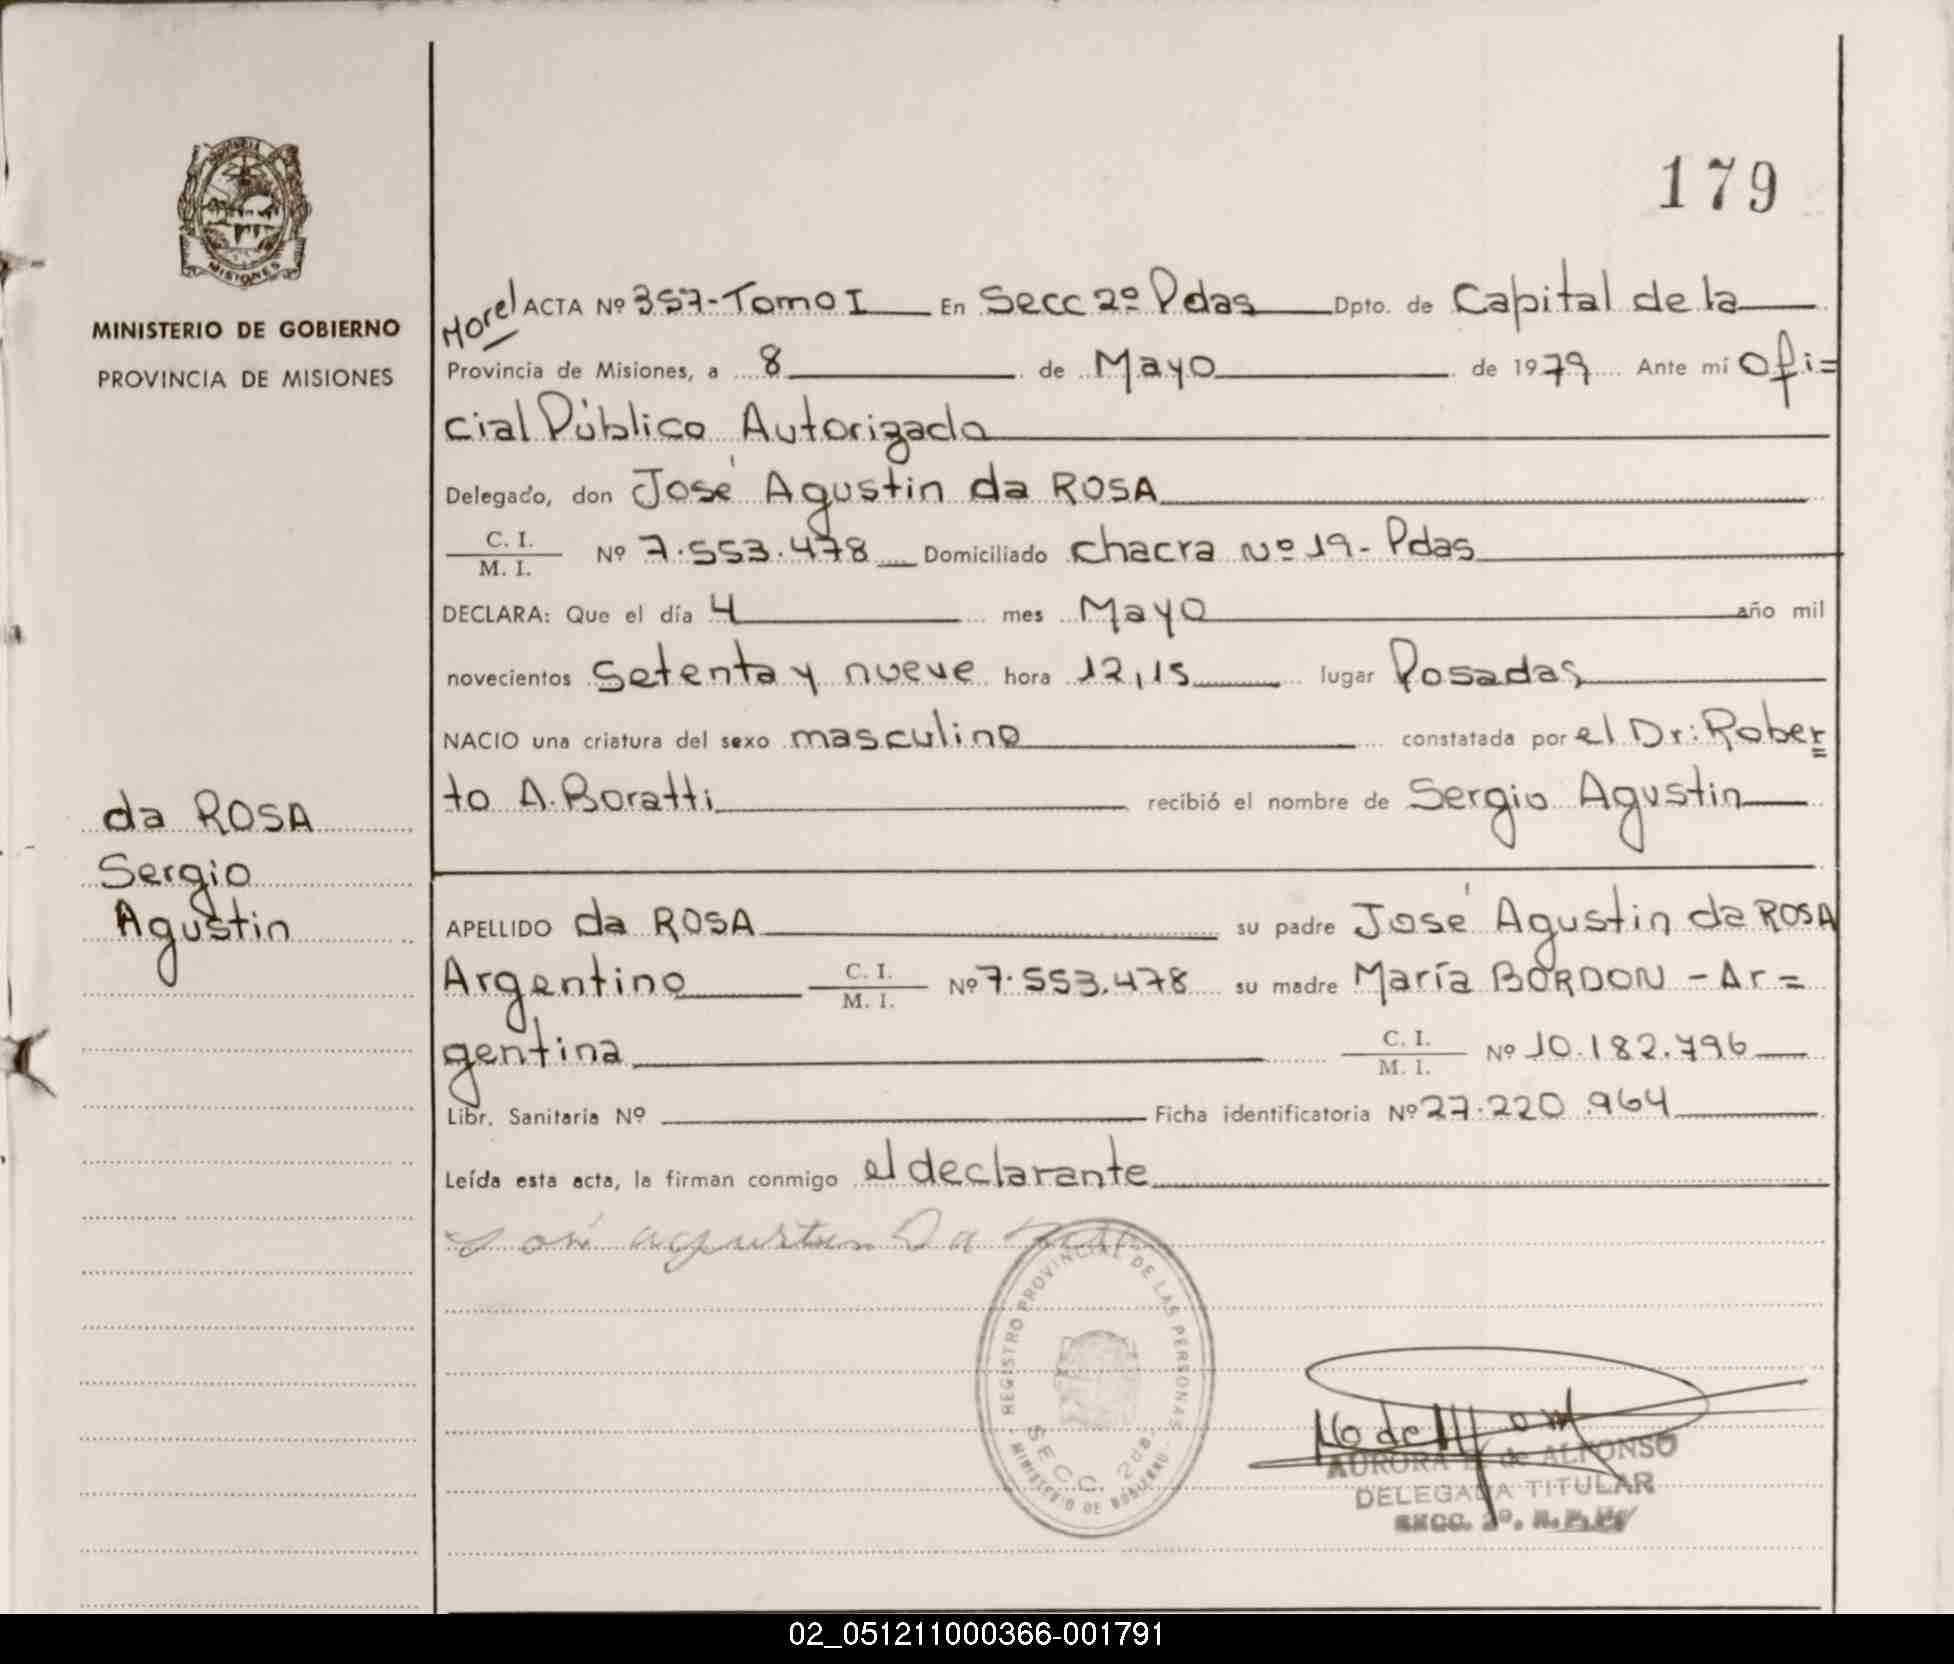 179
MINISTERIO DE GOBIERNO
PROVINCIA DE MISIONES
da ROSA
Sergio
Agustin
Morel ACTA Nº 357-Tomo I En Secc 2º Pdas Dpto. de Capital de la
Provincia de Misiones, a 8 de Mayo de 1979 Ante mí Ofi=
cial Público Autorizada
Delegado, don José Agustin da ROSA
C. I.
M. I. Nº 7.553.478 Domiciliado chacra Nº 19- Pdas
DECLARA: Que el día 4 mes Mayo año mil
novecientos setenta y nueve hora 12,15 lugar Posadas
NACIO una criatura del sexo masculino constatada por el Dr: Rober=
to A. Boratti recibió el nombre de Sergio Agustin
APELLIDO da ROSA su padre José Agustin da ROSA
Argentino C. I.
M. I. Nº 7.553.478 su madre María BORDON - Ar=
gentina C. I.
M. I. Nº 10.182.796
Libr. Sanitaria Nº Ficha identificatoria Nº 27.220.964
Leída esta acta, la firman conmigo el declarante
José agustin Da
REGISTRO PROVINCIAL DE LAS PERSONAS
SECC. 2da.
MINISTERIO DE GOBIERNO
AURORA de ALFONSO
DELEGADA TITULAR
SECC. 2º.
MISIONES
02_051211000366-001791